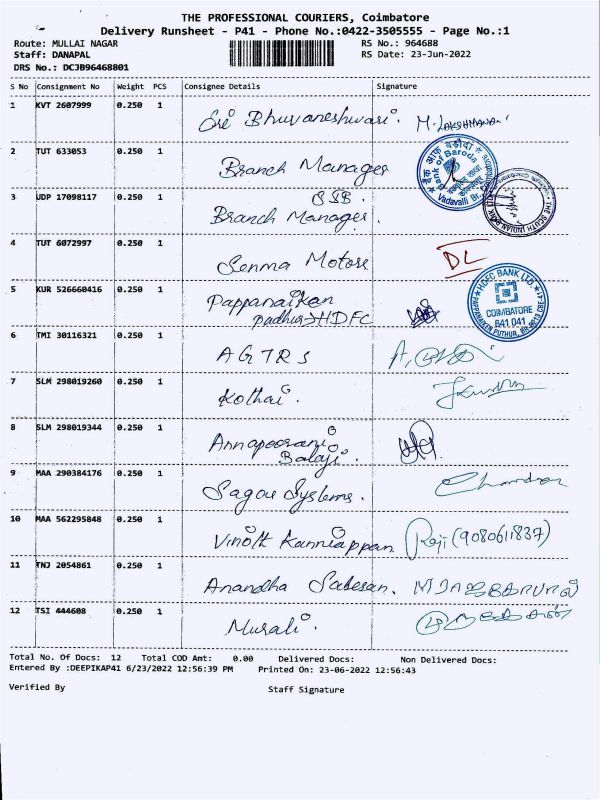 THE PROFESSIONAL COURIERS, Coimbatore
Delivery Runsheet - P41 - Phone No.:0422-3505555 - Page No.:1
Route: MULLAI NAGAR RS No.: 964688
Staff: DANAPAL RS Date: 23-Jun-2022
DRS No.: DCJB96468801
S No Consignment No Weight PCS Consignee Details Signature
1 KVT 2607999 0.250 1
Sri Bhuvaneshwari. M. LAKSHMANA
2 TUT 633053 0.250 1
Branch Manager
Bank of Baroda
Vadavalli Br.
3 UDP 17098117 0.250 1
Branch Manager.
THE SOUTH INDIAN BANK LTD
4 TUT 6072997 0.250 1
Senma Motors DL
5 KUR 526660416 0.250 1
Pappanaiken
padhur HDFC
HDFC BANK LTD.
COIMBATORE
641 041
PAPPANAIKEN PUTHUR,
6 TMI 30116321 0.250 1
AGTRS
7 SLM 298019260 0.250 1
Kothai.
8 SLM 298019344 0.250 1
Annapoorani
Balaji.
9 MAA 290384176 0.250 1
Sagar Systems. Chandran
10 MAA 562295848 0.250 1
Vinoth Kanniappan Raji (9080611837)
11 TNJ 2054861 0.250 1
Anandha Sabesan.
12 TSI 444608 0.250 1
Murali.
Total No. Of Docs: 12 Total COD Amt: 0.00 Delivered Docs: Non Delivered Docs:
Entered By :DEEPIKAP41 6/23/2022 12:56:39 PM Printed On: 23-06-2022 12:56:43
Verified By Staff Signature